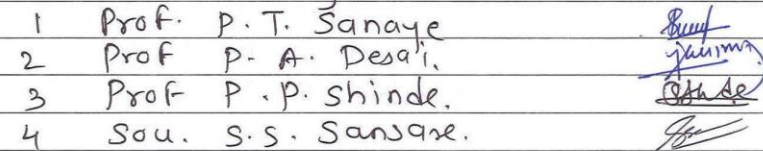 1 Prof. P. T. Sanaye
2 Prof P. A. Desai.
3 Prof P. P. Shinde.
4 Sou. S. S. Sansare.